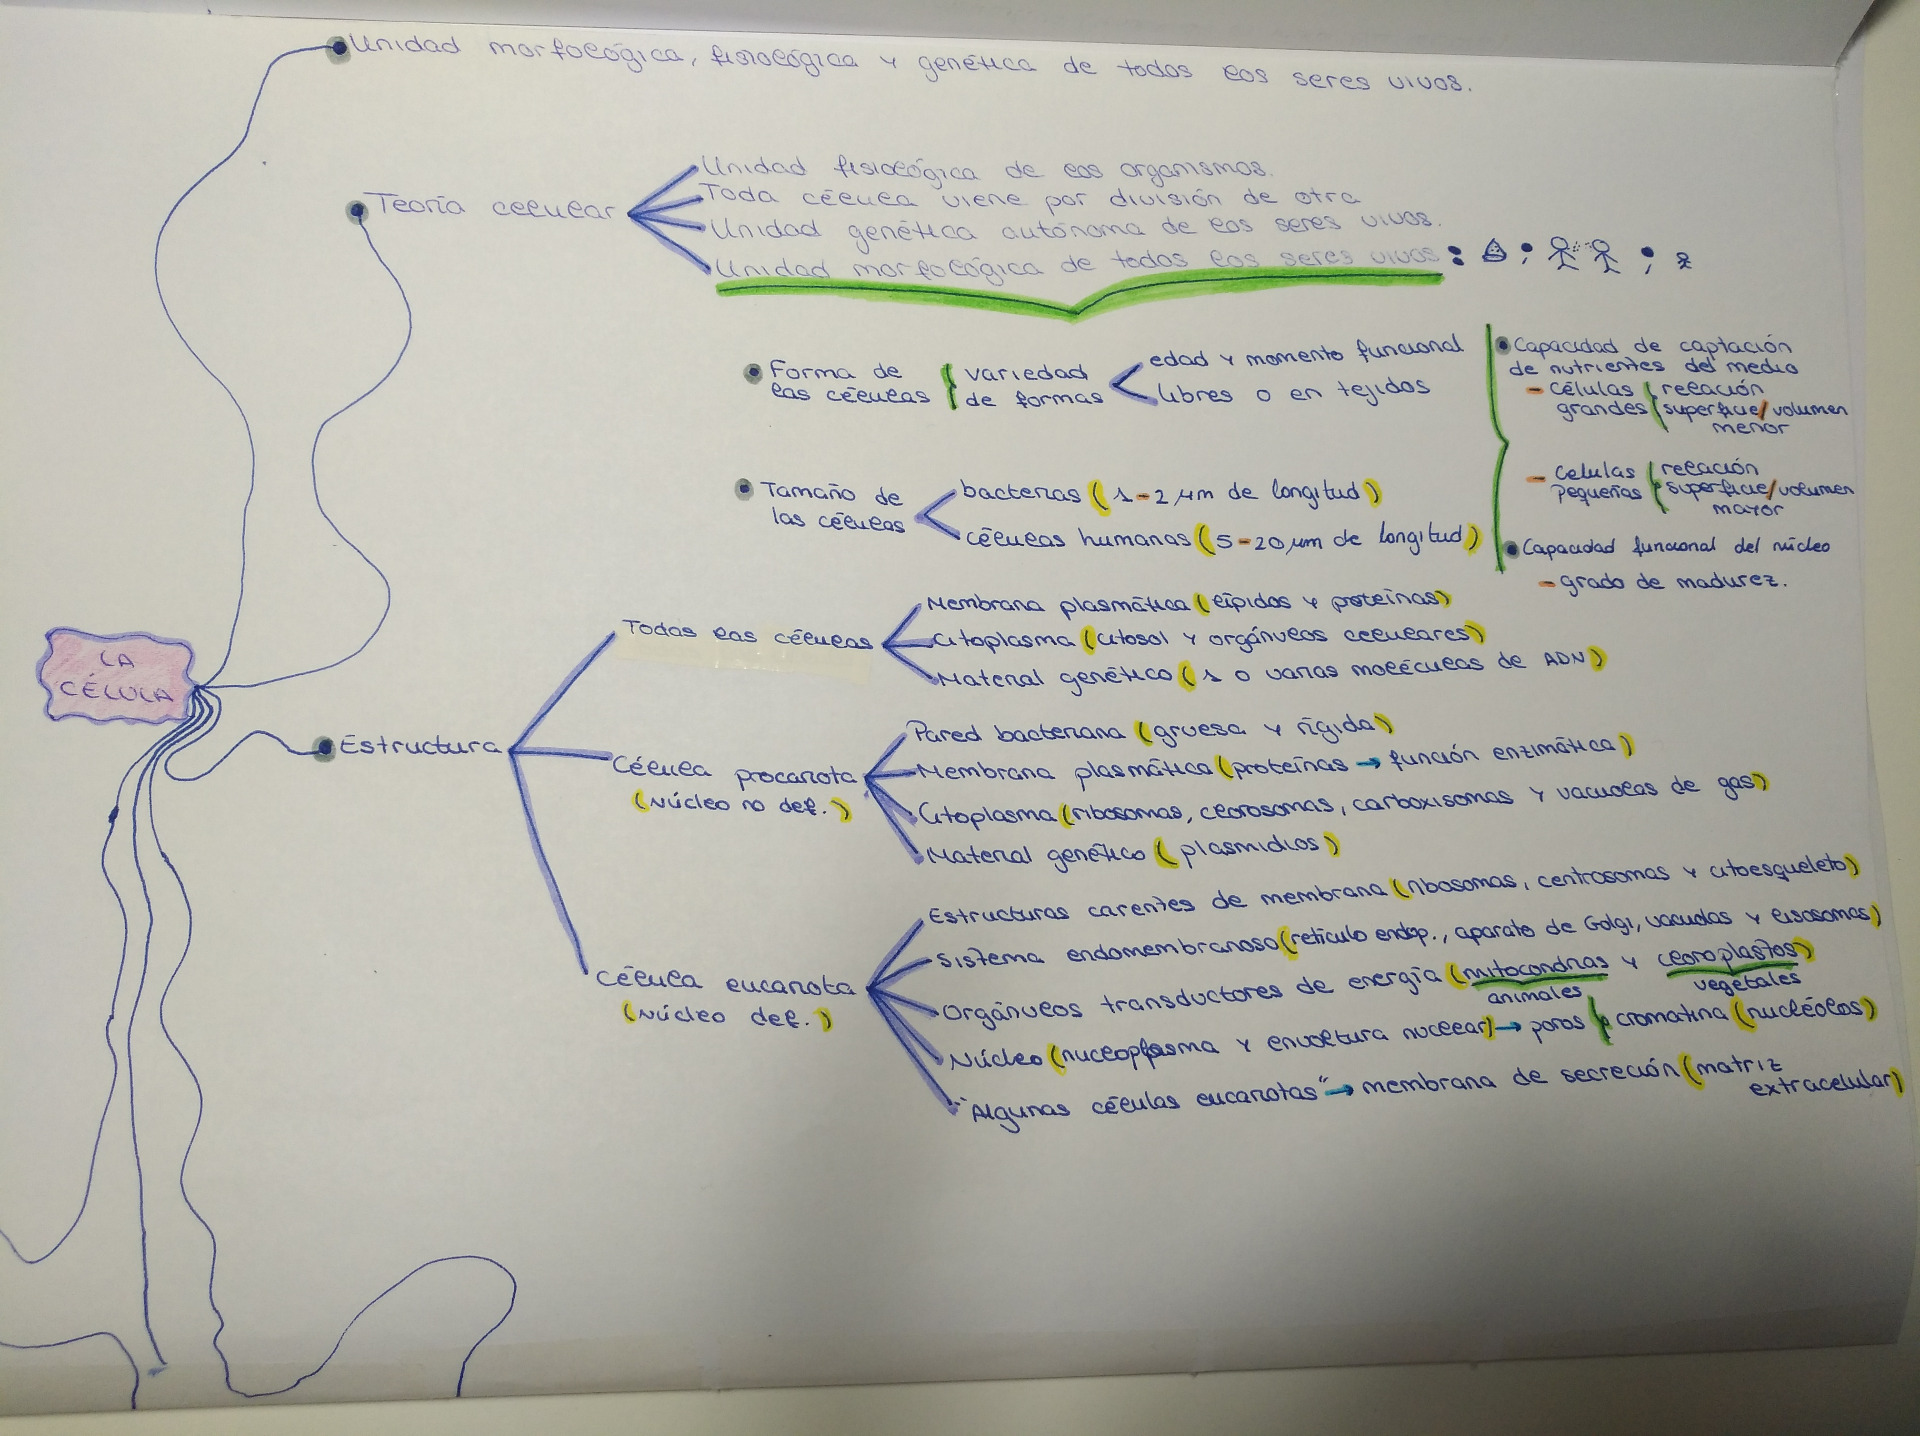 Unidad morfológica, fisiológica y genética de todos los seres vivos.
Teoría celular
Unidad fisiológica de los organismos.
Toda célula viene por división de otra
Unidad genética autónoma de los seres vivos.
Unidad morfológica de todos los seres vivos:
Forma de
las células
variedad
de formas
edad y momento funcional
libres o en tejidos
Tamaño de
las células
bacterias (1-2 μm de longitud)
células humanas (5-20 μm de longitud)
Capacidad de captación
de nutrientes del medio
- células
grandes
relación
superficie/volumen
menor
- celulas
pequeñas
relación
superficie/volumen
mayor
Capacidad funcional del núcleo
- grado de madurez.
LA
CÉLULA
Estructura
Todas las células
Membrana plasmática (lípidos y proteínas)
Citoplasma (citosol y orgánulos celulares)
Material genético (1 o varias moléculas de ADN)
Célula procariota
(Núcleo no def.)
Pared bacteriana (gruesa y rígida)
Membrana plasmática (proteínas → función enzimática)
Citoplasma (ribosomas, clorosomas, carboxisomas y vacuolas de gas)
Material genético (plasmidios)
Célula eucariota
(Núcleo def.)
Estructuras carentes de membrana (ribosomas, centrosomas y citoesqueleto)
Sistema endomembranoso (retículo endop., aparato de Golgi, vacuolas y lisosomas)
Orgánulos transductores de energía (mitocondrias y cloroplastos)
animales
vegetales
Núcleo (nucleoplasma y envoltura nuclear) → poros cromatina (nucléolos)
"Algunas células eucariotas" → membrana de secreción (matriz
extracelular)